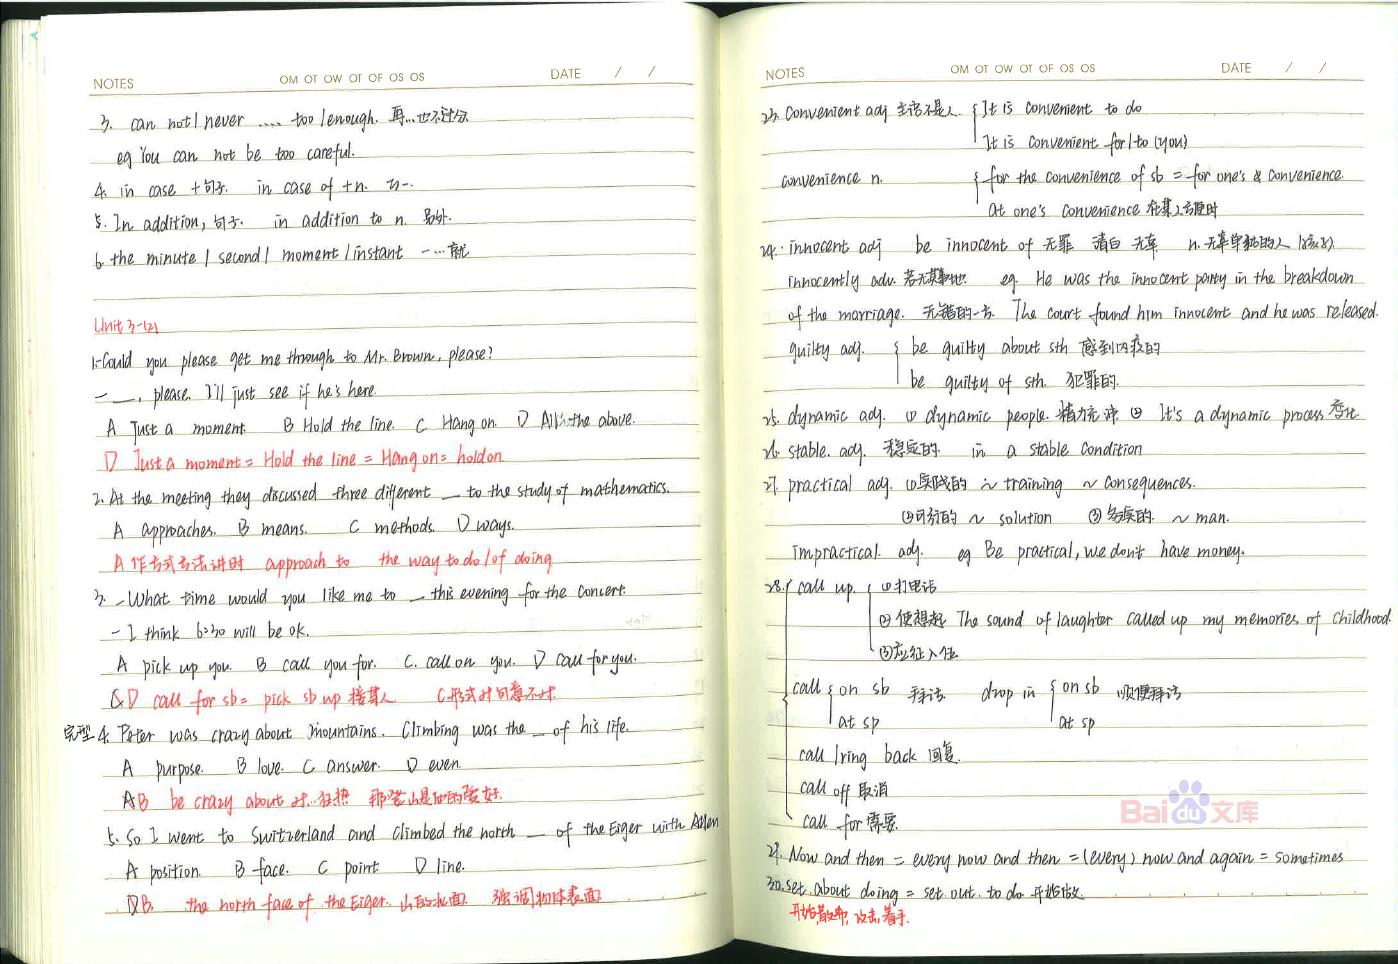 NOTES OM OT OW OT OF OS OS DATE / /
3. can not / never .... too / enough. 再...也不过分
eg You can not be too careful.
4. in case +句子. in case of +n. 万一.
5. In addition, 句子. in addition to n. 另外.
6. the minute / second / moment / instant 一...就
Unit 3-(2)
1.-Could you please get me through to Mr. Brown, please?
- __, please. I'll just see if he's here.
A Just a moment. B Hold the line. C Hang on. D All the above.
D Just a moment = Hold the line = Hang on = hold on
2. At the meeting they discussed three different __ to the study of mathematics.
A approaches. B means. C methods. D ways.
A 作方式方法讲时 approach to the way to do / of doing
3. -What time would you like me to __ this evening for the concert.
- I think 6:30 will be ok.
A pick up you. B call you for. C. call on you. D call for you.
D call for sb = pick sb up 接某人 C形式对句意不对
完型 4. Peter was crazy about mountains. Climbing was the __ of his life.
A purpose. B love. C answer. D even
AB be crazy about 对...狂热 那登山是他的爱好.
5. So I went to Switzerland and climbed the north __ of the Eiger with Allen
A position. B face. C point D line.
DB. the north face of the Eiger. 山的北面. 强调物体表面.
NOTES OM OT OW OT OF OS OS DATE / /
23. Convenient adj 主语不是人. { It is convenient to do
It is convenient for / to (you)
convenience n. { for the convenience of sb = for one's convenience.
at one's convenience 在某人方便时
24. innocent adj be innocent of 无罪 清白 无辜 n. 无辜单纯的人 (孩子).
innocently adv. 若无其事地. eg. He was the innocent party in the breakdown
of the marriage. 无错的一方. The court found him innocent and he was released.
guilty adj. { be guilty about sth 感到内疚的
be guilty of sth. 犯罪的.
25. dynamic adj. ① dynamic people. 精力充沛 ② It's a dynamic process 变化
26. stable. adj. 稳定的. in a stable condition
27. practical adj. ①实践的 ~ training ~ consequences.
②可行的 ~ solution ③务实的. ~ man.
impractical. adj. eg Be practical, we don't have money.
28. { call up. { ①打电话
②使想起 The sound of laughter called up my memories of childhood.
③应征入伍
call { on sb 拜访 drop in { on sb 顺便拜访
at sp at sp
call / ring back 回复.
call off 取消
call for 需要.
29. Now and then = every now and then = (every) now and again = sometimes
30. set about doing = set out to do 开始做.
开始,散布, 攻击,着手.
Bai du 文库